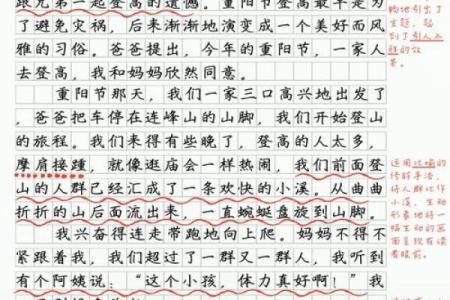 跟兄弟一起登高的遗憾。重阳节登高最早是为
了避免灾祸，后来渐渐地演变成一个美好而风
雅的习俗。爸爸提出，今年的重阳节，一家人
去登高，我和妈妈欣然同意。
重阳节那天，我们一家三口高兴地出发了
，爸爸把车停在连峰山的山脚，我们开始登山
的旅程。我们来得有些晚了，登高的人太多，
摩肩接踵，就像逛庙会一样热闹，我们前面登
山的人群已经汇成了一条欢快的小溪。从曲曲
折折的山后面流出来，一直蜿蜒盘旋到山脚。
我兴奋得连走带跑地向上爬。妈妈不得不
紧跟着我，我们超过了一群又一群人，我听到
有个阿姨说：“这个小孩，体力真好啊！”我
地引出了
主题，起
到了引人入
胜的效
果。
运用比喻的
修辞手法，
将人群比作
小溪，生动
形象地将一
幅生动的画
面呈现在读
者眼前。